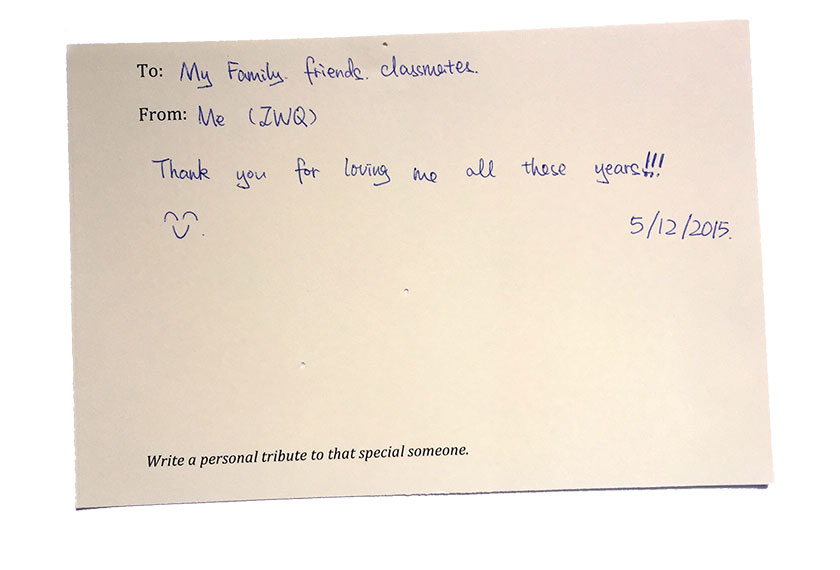 To: My Family. friends. classmates.
From: Me (ZWQ)
Thank you for loving me all these years!!!
5/12/2015.
Write a personal tribute to that special someone.